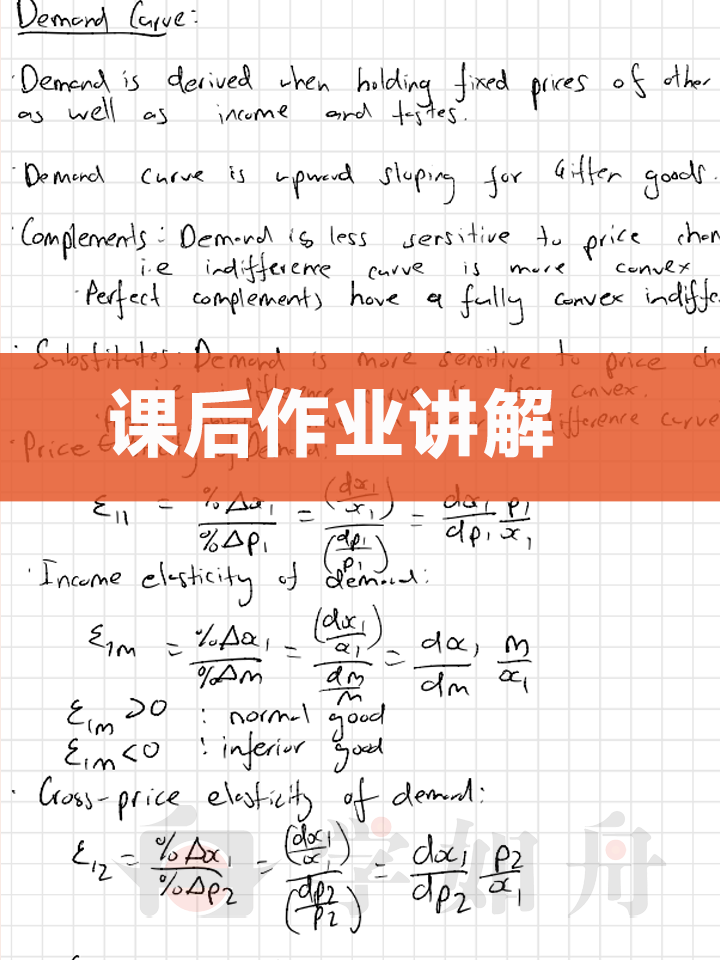 Demand Curve:
· Demand is derived when holding fixed prices of other
as well as income and tastes.
· Demand curve is upward sloping for Giffen goods.
· Complements: Demand is less sensitive to price chan
i.e indifference curve is more convex
· Perfect complements have a fully convex indiffe
· Substitutes: Demand is more sensitive to price cha
indifference curve is less convex.
indifference curve
课后作业讲解
· Price Elasticity of Demand:
ε₁₁ = %Δx₁/%Δp₁ = (dx₁/x₁)/(dp₁/p₁) = dx₁/dp₁ p₁/x₁
· Income elasticity of demand:
ε₁m = %Δx₁/%Δm = (dx₁/x₁)/(dm/m) = dx₁/dm m/x₁
ε₁m > 0 : normal good
ε₁m < 0 : inferior good
· Cross-price elasticity of demand:
ε₁₂ = %Δx₁/%Δp₂ = (dx₁/x₁)/(dp₂/p₂) = dx₁/dp₂ p₂/x₁
学如舟